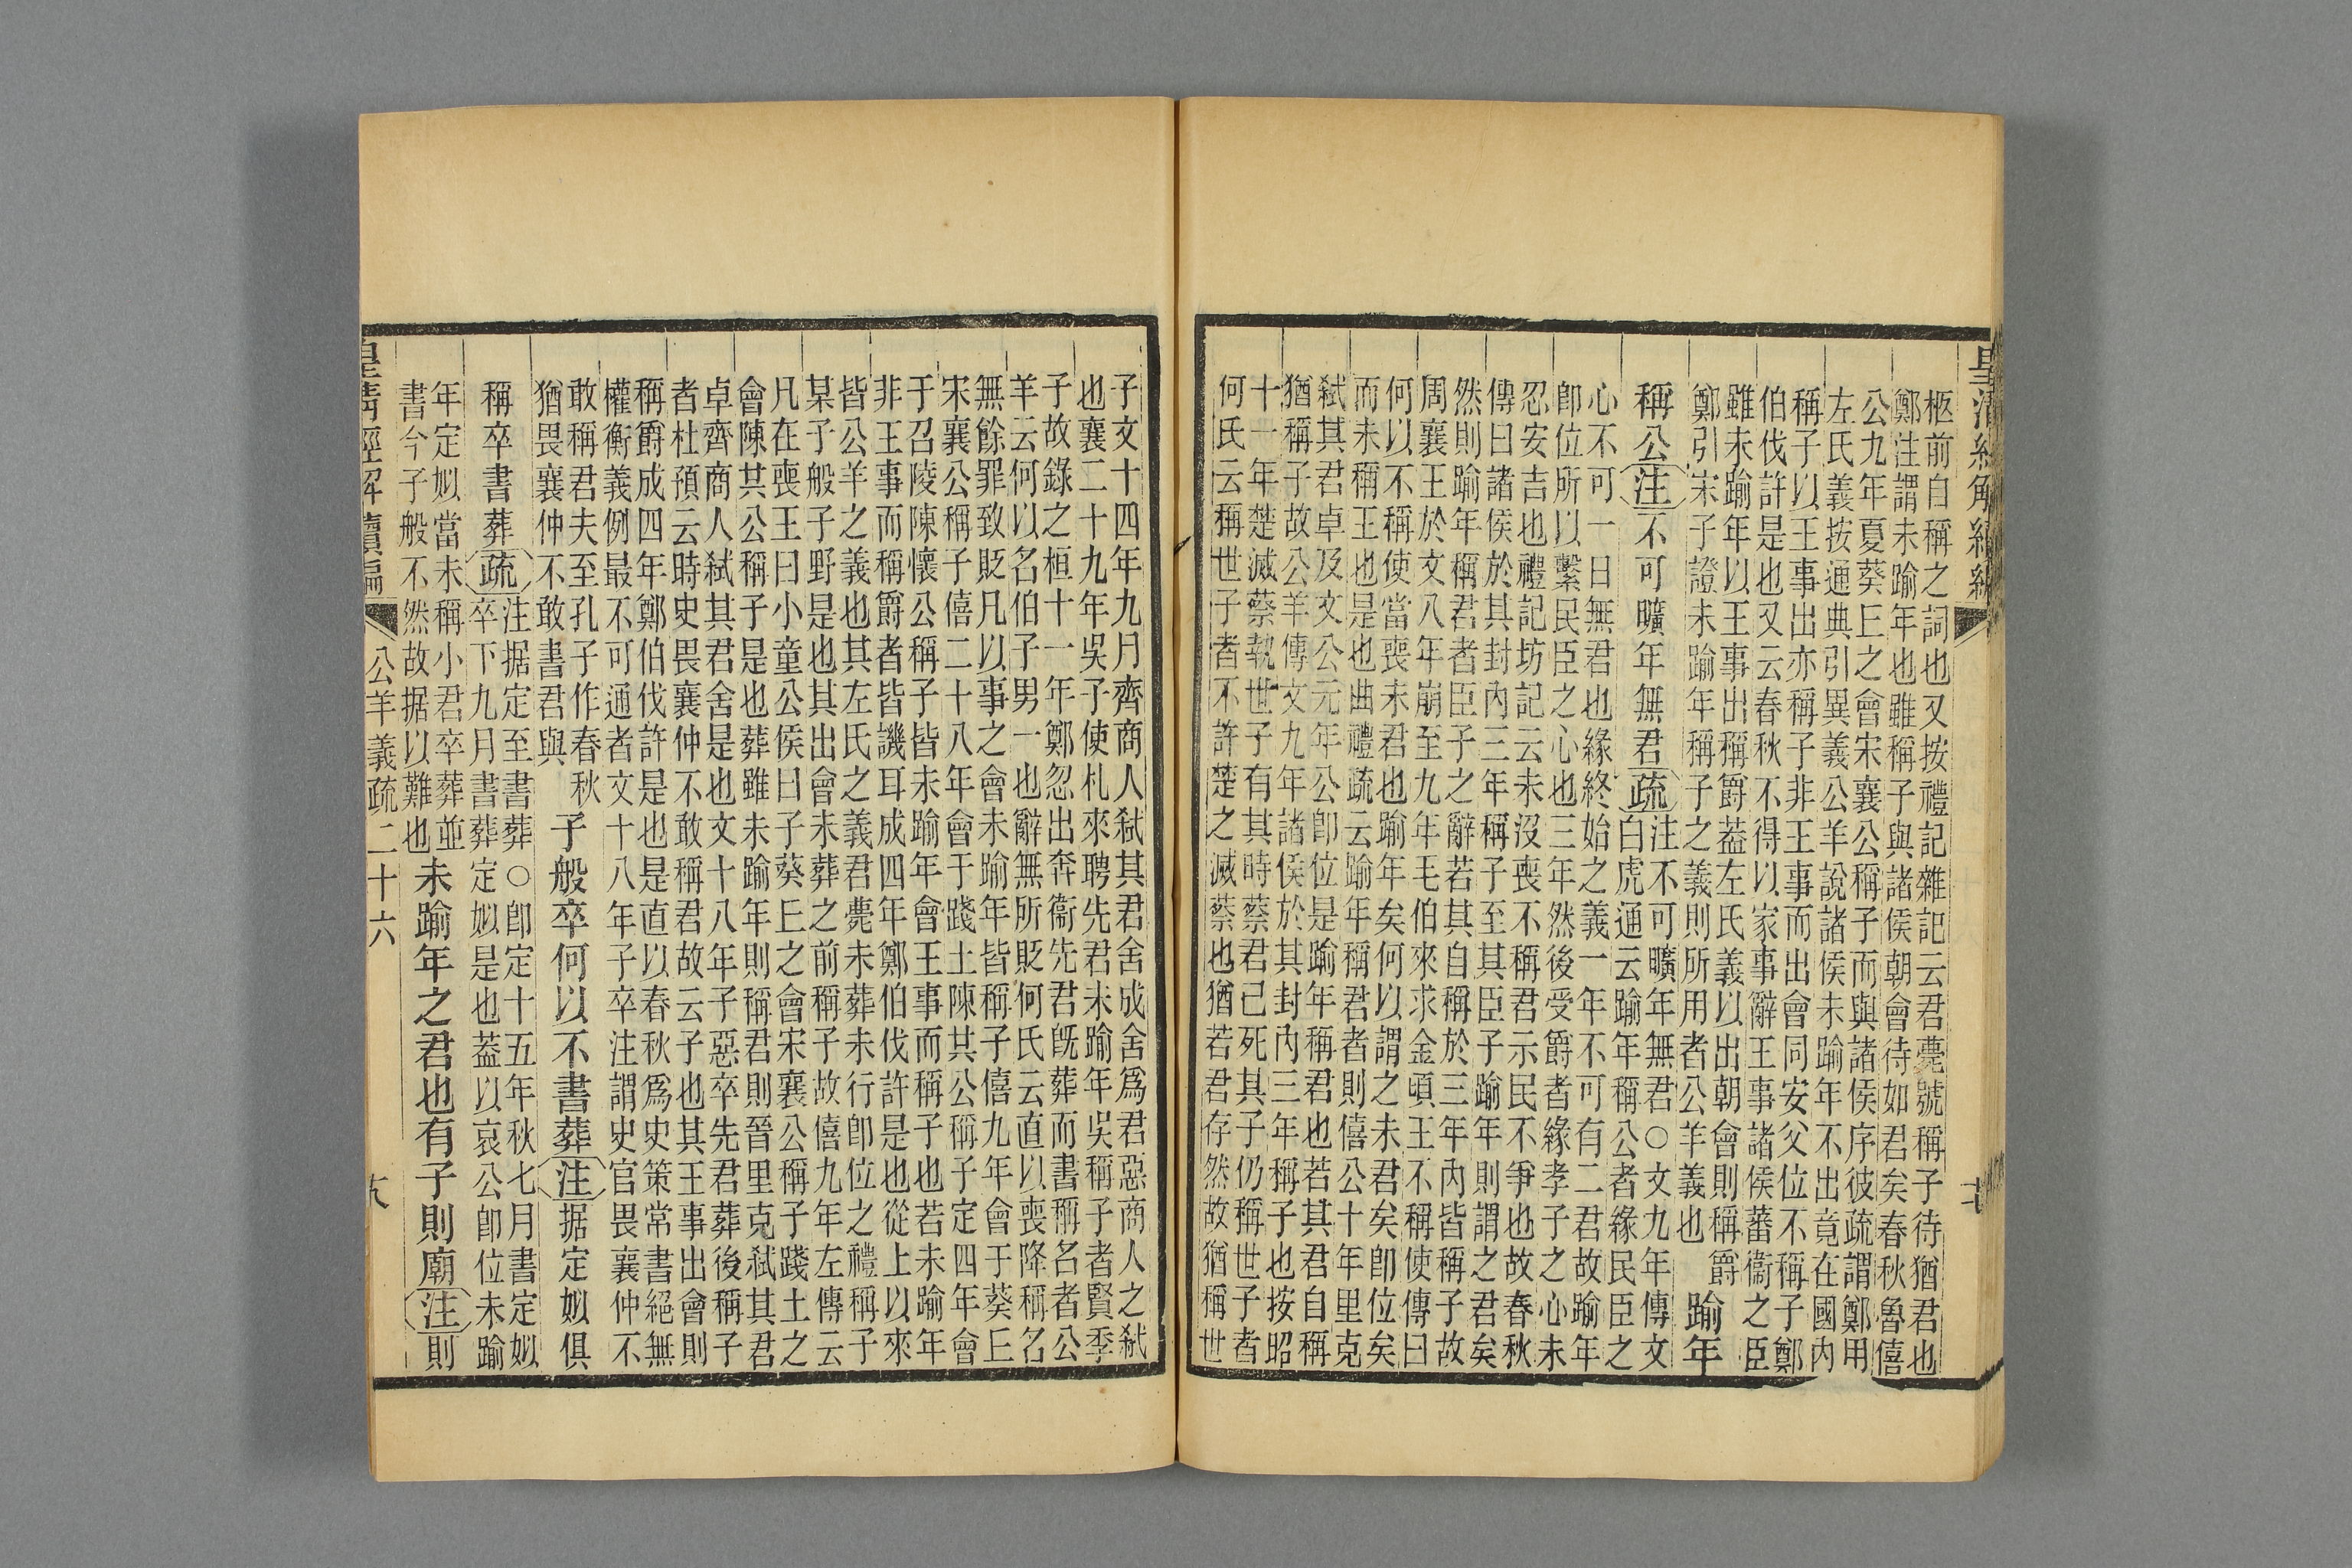 柩前自稱之詞也又按禮記雜記云君薨號稱子待猶君也
鄭注謂未踰年也雖稱子與諸侯朝會待如君矣春秋魯僖
公九年夏葵丘之會宋襄公稱子而與諸侯序彼疏謂鄭用
左氏義按通典引異義公羊說諸侯未踰年不出竟在國內
稱子以王事出亦稱子非王事而出會同安父位不稱子鄭
伯伐許是也又云春秋不得以家事辭王事諸侯蕃衞之臣
雖未踰年以王事出稱爵葢左氏義以出朝會則稱爵
鄭引宋子證未踰年稱子之義則所用者公羊義也
踰年
稱公注不可曠年無君疏
注不可曠年無君○文九年傳文
白虎通云踰年稱公者緣民臣之
心不可一日無君也緣終始之義一年不可有二君故踰年
卽位所以繫民臣之心也三年然後受爵者緣孝子之心未
忍安吉也禮記坊記云未沒喪不稱君示民不爭也故春秋
傳曰諸侯於其封內三年稱子至其臣子踰年則謂之君矣
然則踰年稱君者臣子之辭若其自稱於三年內皆稱子故
周襄王於文八年崩至九年毛伯來求金頃王不稱使傳曰
何以不稱使當喪未君也踰年矣何以謂之未君矣卽位矣
而未稱王也是也曲禮疏云踰年稱君者則僖公十年里克
弒其君卓及文公元年公卽位是踰年稱君也若其君自稱
猶稱子故公羊傳文九年諸侯於其封內三年稱子也按昭
十一年楚滅蔡執世子有其時蔡君已死其子仍稱世子者
何氏云稱世子者不許楚之滅蔡也猶若君存然故猶稱世
子文十四年九月齊商人弒其君舍成舍爲君惡商人之弒
也襄二十九年吳子使札來聘先君未踰年吳稱子者賢季
子故錄之桓十一年鄭忽出奔衞先君旣葬而書稱名者公
羊云何以名伯子男一也辭無所貶何氏云直以喪降稱名
無餘罪致貶凡以事之會未踰年皆稱子僖九年會于葵丘
宋襄公稱子僖二十八年會于踐土陳其公稱子定四年會
于召陵陳懷公稱子皆未踰年會王事而稱子也若未踰年
非王事而稱爵者皆譏耳成四年鄭伯伐許是也從上以來
皆公羊之義也其左氏之義君薨未葬未行卽位之禮稱子
某子般子野是也其出會未葬之前稱子故僖九年左傳云
凡在喪王曰小童公侯曰子葵丘之會宋襄公稱子踐土之
會陳其公稱子是也葬雖未踰年則稱君則晉里克弒其君
卓齊商人弒其君舍是也文十八年子惡卒先君葬後稱子
者杜預云時史畏襄仲不敢稱君故云子也其王事出會則
稱爵成四年鄭伯伐許是也是直以春秋爲史策常書絕無
權衡義例最不可通者文十八年子卒注謂史官畏襄仲不
敢稱君夫至孔子作春秋
猶畏襄仲不敢書君與
子般卒何以不書葬注据定姒俱
稱卒書葬疏
注据定至書葬○卽定十五年秋七月書定姒
卒下九月書葬定姒是也葢以哀公卽位未踰
年定姒當未稱小君卒葬並
書今子般不然故据以難也
未踰年之君也有子則廟注則
公羊義疏二十六